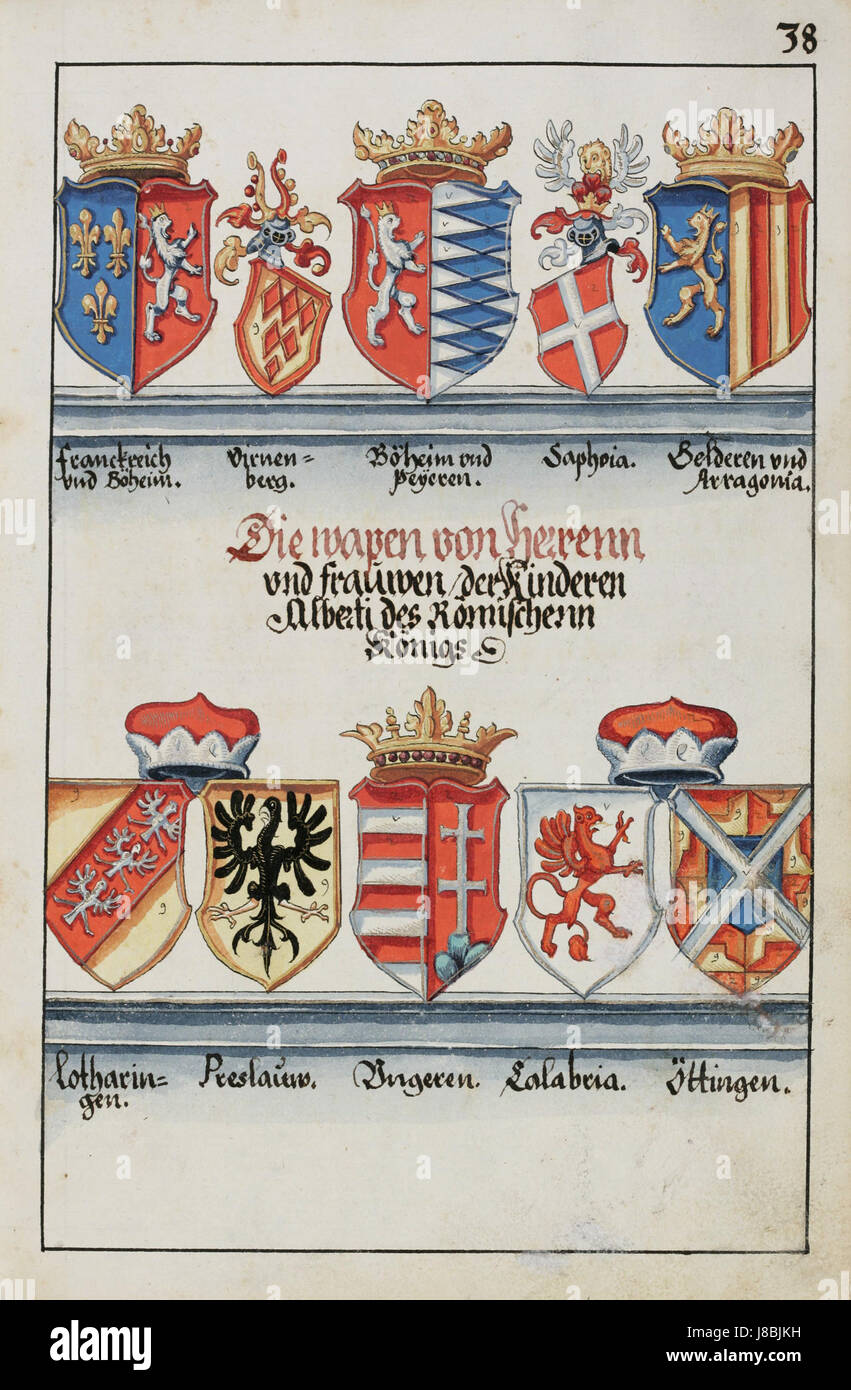 38
Franckreich
vnd Böheim.
Virnen=
berg.
Böheim vnd
Peyeren.
Saphoia.
Gelderen vnd
Arragonia.
Die wapen von Herrenn
vnd frauwen / der Kinderen
Alberti des Römischenn
Königs
Lotharin=
gen.
Preslauw.
Vngeren.
Calabria.
Öttingen.
alamy
Image ID: J8BJKH
www.alamy.com